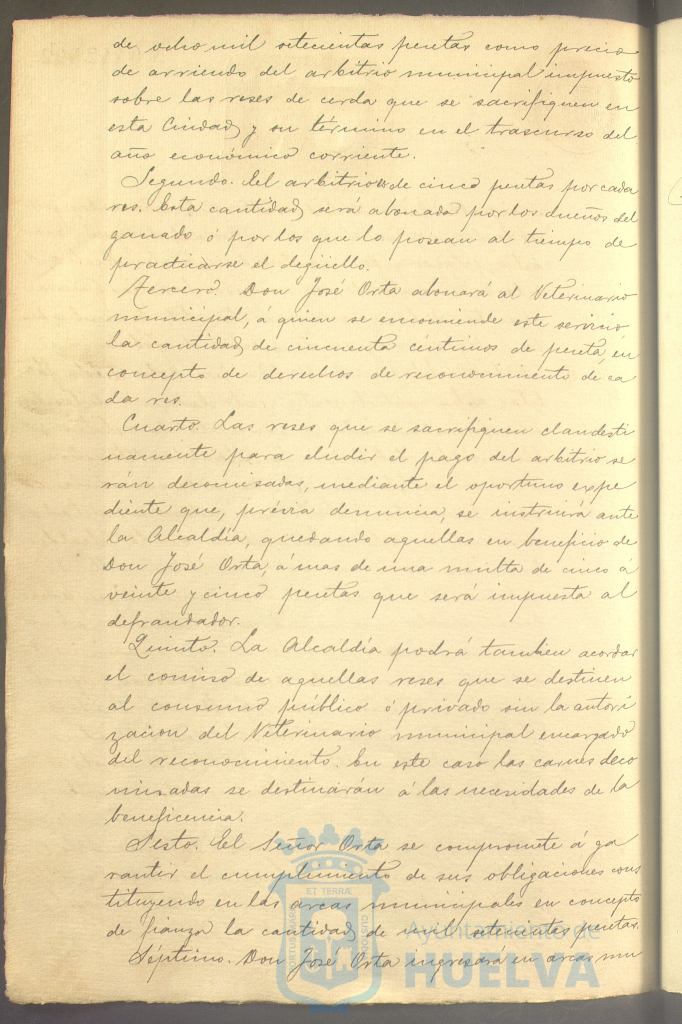 de ocho mil setecientas pesetas como precio
de arriendo del arbitrio municipal impuesto
sobre las reses de cerda que se sacrifiquen en
esta Ciudad y su término en el trascurso del
año económico corriente.
Segundo. El arbitrio es de cinco pesetas por cada
res. Esta cantidad será abonada por los dueños del
ganado ó por los que lo posean al tiempo de
practicarse el degüello.
Tercero. Don José Orta abonará al Veterinario
municipal, á quien se encomiende este servicio
la cantidad de cincuenta céntimos de peseta, en
concepto de derechos de reconocimiento de ca
da res.
Cuarto. Las reses que se sacrifiquen clandesti
namente para eludir el pago del arbitrio se
rán decomisadas, mediante el oportuno expe
diente que, prévia denuncia, se instruirá ante
la Alcaldía, quedando aquellas en beneficio de
Don José Orta, á mas de una multa de cinco á
veinte y cinco pesetas que será impuesta al
defraudador.
Quinto. La Alcaldía podrá tambien acordar
el comiso de aquellas reses que se destinen
al consumo público ó privado sin la autori
zacion del Veterinario municipal encargado
del reconocimiento. En este caso las carnes deco
misadas se destinarán á las necesidades de la
beneficencia.
Sesto. El Señor Orta se compromete á ga
rantir el cumplimento de sus obligaciones cons
tituyendo en las arcas municipales en concepto
de fianza la cantidad de mil setecientas pesetas.
Séptimo. Don José Orta ingresará en arcas mu
ET TERRÆ
PORTUS MARIS
CUSTODIA
Ayuntamiento de
HUELVA